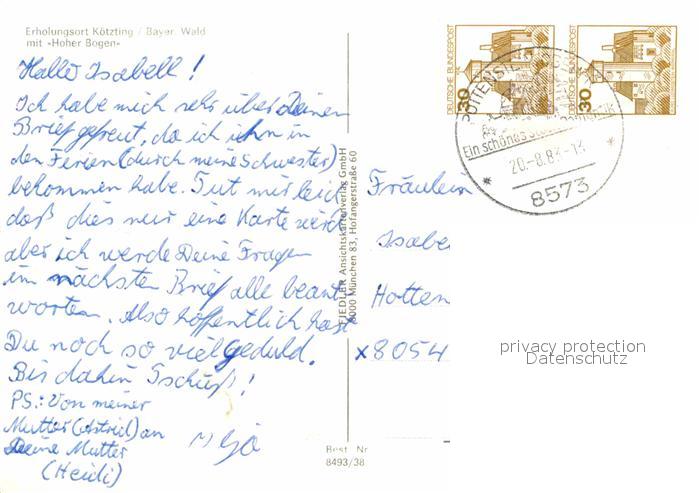 Erholungsort Kötzting / Bayer. Wald
mit »Hoher Bogen«
Hallo Isabell!
Ich habe mich sehr über Deinen
Brief gefreut, da ich ihn in
den Ferien (durch meine Schwester)
bekommen habe. Tut mir leid
daß dies nur eine Karte wird
aber ich werde Deine Fragen
im nächsten Brief alle beant
worten. Also hoffentlich hast
Du noch so viel geduld.
Bis dahin Tschüß!
PS.: Von meiner
Mutter (Astrid) an
Deine Mutter
(Heidi)
FIEDLER Ansichtskartenverlag GmbH
8000 München 83, Hofangerstraße 60
Best. Nr.
8493/38
DEUTSCHE BUNDESPOST
30
DEUTSCHE BUNDESPOST
30
POTTENSTEIN
Ein schönes
20.-8.83.-13
8573
Fräulein
Isabe
Hotten
x8054
privacy protection
Datenschutz